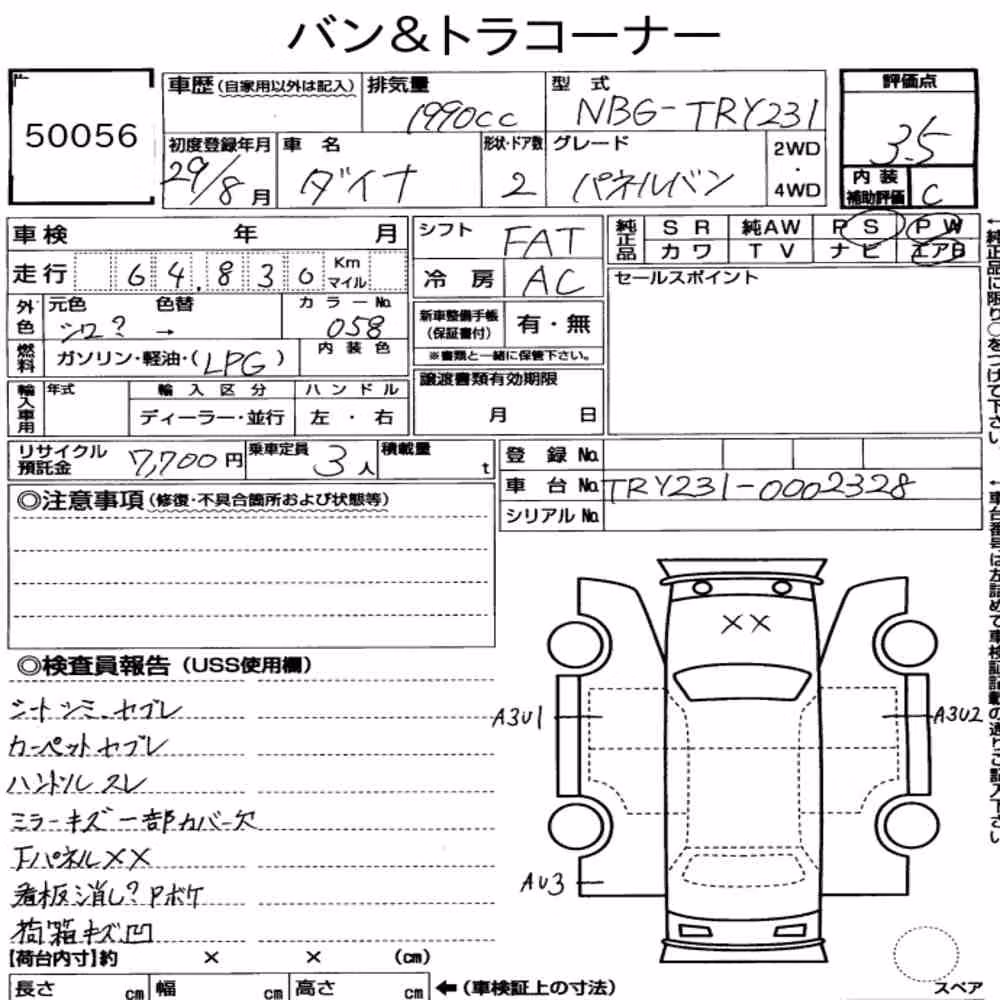 バン&トラコーナー
50056
車歴(自家用以外は記入)
排気量 1990cc
型式 NBG-TRY231
評価点 3.5
初度登録年月 29/8月
車名 ダイナ
形状・ドア数 2
グレード パネルバン
2WD・4WD
内装補助評価 C
車検 年 月
シフト FAT
純正品 SR 純AW PS PW
カワ TV ナビ エアB
走行 64,830 Km マイル
冷房 AC
セールスポイント
外色 元色 シロ? 色替 → カラーNo. 058
新車整備手帳(保証書付) 有・無
※書類と一緒に保管下さい。
燃料 ガソリン・軽油・(LPG) 内装色
譲渡書類有効期限
月 日
輸入車用 年式 輸入区分 ハンドル
ディーラー・並行 左・右
リサイクル預託金 7,700円
乗車定員 3人
積載量 t
登録No.
車台No. TRY231-0002328
シリアルNo.
◎注意事項(修復・不具合箇所および状態等)
◎検査員報告(USS使用欄)
シートシミ、セブレ
カーペットセブレ
ハンドルスレ
ミラーキズ一部カバー欠
下パネル××
看板消し?Pボケ
荷箱キズ凹
××
A3U1
A3U2
AU3
【荷台内寸】約 × × (cm)
長さ cm 幅 cm 高さ cm
←(車検証上の寸法)
スペア
←純正品に限り○をつけて下さい。
←車台番号は左詰めで車検証記載の通りご記入下さい。